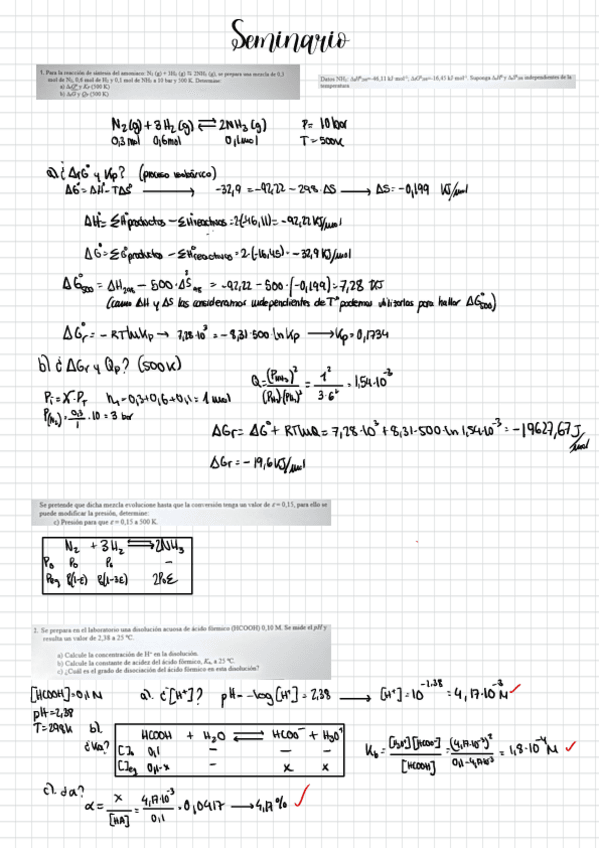 Seminario
1. Para la reacción de síntesis del amoniaco: N₂ (g) + 3H₂ (g) ⇆ 2NH₃ (g), se prepara una mezcla de 0,3
mol de N₂, 0,6 mol de H₂ y 0,1 mol de NH₃ a 10 bar y 500 K. Determine:
a) ΔrG° y Kp (500 K)
b) ΔrG y Qp (500 K)
Datos NH₃: ΔfH°₂₉₈=-46,11 kJ·mol⁻¹; ΔfG°₂₉₈=-16,45 kJ·mol⁻¹. Suponga ΔrH° y ΔrS° independientes de la
temperatura
N₂(g)+3H₂(g) ⇌ 2NH₃(g) P= 10 bar
0,3mol 0,6mol 0,1mol T=500K
a) ¿ΔrG° y Kp? (proceso isobárico)
ΔG°=ΔH°-TΔS° → -32,9 = -92,22 - 298·ΔS → ΔS=-0,199 KJ/mol
ΔH°= ΣH°productos - ΣH°reactivos = 2(-46,11) = -92,22 KJ/mol
ΔG°= ΣG°productos - ΣH°reactivos = 2·(-16,45) = -32,9 KJ/mol
ΔG°₅₀₀ = ΔH₂₉₈ - 500·ΔS°₂₉₈ = -92,22 - 500·(-0,199) = 7,28 KJ
(como ΔH y ΔS las consideramos independientes de T° podemos utilizarlas para hallar ΔG°₅₀₀)
ΔG°r = -RTlnKp → 7,28·10³ = -8,31·500 ln Kp → Kp = 0,1734
b) ¿ΔGr y Qp? (500K)
Q= (P_NH₃)²/(P_N₂)·(P_H₂)³ = 1²/3·6³ = 1,54·10⁻³
Pi = X·P_T n_t = 0,3+0,6+0,1 = 1 mol
P(N₂) = 0,3/1 · 10 = 3 bar
ΔGr = ΔG° + RTlnQ = 7,28·10³ + 8,31·500·ln 1,54·10⁻³ = -19627,67 J/mol
ΔGr = -19,6 KJ/mol
Se pretende que dicha mezcla evolucione hasta que la conversión tenga un valor de ε = 0,15, para ello se
puede modificar la presión, determine:
c) Presión para que ε = 0,15 a 500 K.
N₂ + 3H₂ ⇌ 2NH₃
P₀ P₀ P₀ -
Peq P₀(1-ε) P₀(1-3ε) 2P₀ε
2. Se prepara en el laboratorio una disolución acuosa de ácido fórmico (HCOOH) 0,10 M. Se mide el pH y
resulta un valor de 2,38 a 25 °C.
a) Calcule la concentración de H⁺ en la disolución.
b) Calcule la constante de acidez del ácido fórmico, Kₐ, a 25 °C.
c) ¿Cuál es el grado de disociación del ácido fórmico en esta disolución?
[HCOOH]=0,1M a). ¿[H⁺]? pH=-log[H⁺]=2,38 → [H⁺]=10⁻²·³⁸=4,17·10⁻³M ✓
pH=2,38
T=298K b). HCOOH + H₂O ⇌ HCOO⁻ + H₃O⁺
¿Ka? [ ]₀ 0,1 - - -
[ ]eq 0,1-x - x x
K_b = [H₃O⁺][HCOO⁻]/[HCOOH] = (4,17·10⁻³)²/0,1-4,17·10⁻³ = 1,8·10⁻⁴M ✓
c). ¿α?
α = x/[HA] = 4,17·10⁻³/0,1 = 0,0417 → 4,17% ✓